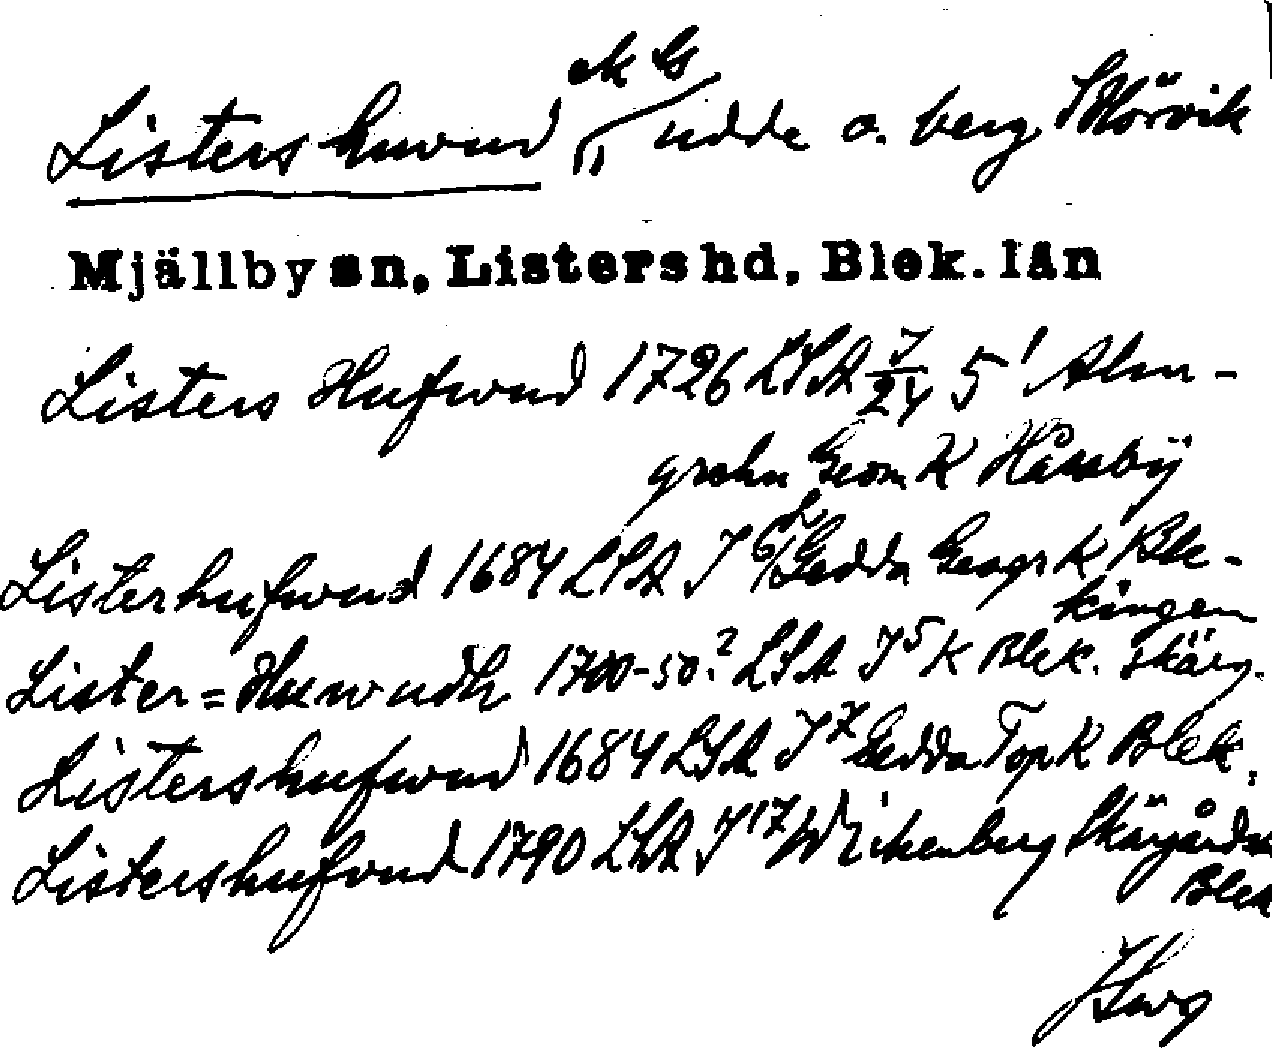 Listershuvud ek G udde o. berg S Hörvik
Mjällby sn, Listers hd, Blek. län
Listers Hufwud 1726 LSA J/24 5¹ Alm-
grehn Geom K Hässbÿ
Listerhufwud 1684 LSA J 6 Gedda Geogr K Ble-
kingen
Lister=Huwudh 1700-50? LSA J⁵ K Blek. skärg.
Listershufwud 1684 LSA J⁷ Gedda Top K Blek.
Listershufvud 1790 LSA J¹⁷ Wikenberg Skärgården
Blek